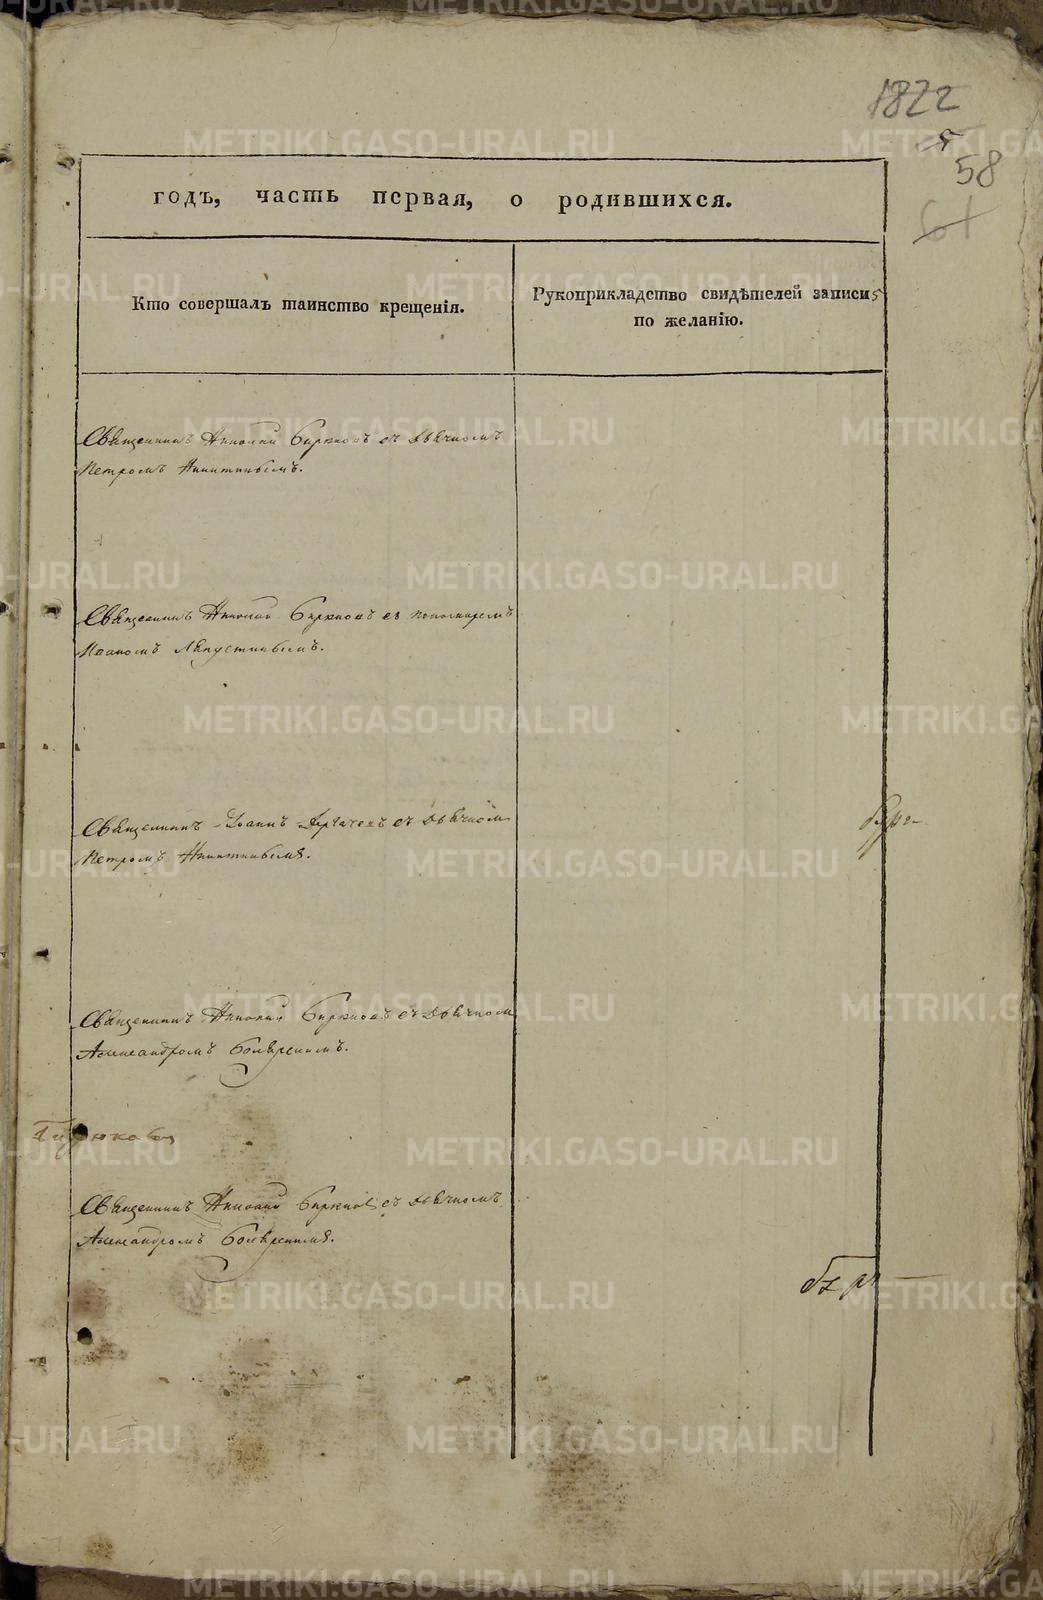 1822
58
61
годъ, часть первая, о родившихся.
Кто совершалъ таинство крещенія.
Рукоприкладство свидѣтелей записи
по желанію.
Священникъ Николай Бирюковъ съ Дьячкомъ
Петромъ Никитинымъ.
Священникъ Николай Бирюковъ съ пономаремъ
Иваномъ
Священникъ Іоаннъ съ Дьячкомъ
Петромъ Никитинымъ.
Священникъ Николай Бирюковъ съ Дьячкомъ
Александромъ
Священникъ Николай Бирюковъ съ Дьячкомъ
Александромъ
METRIKI.GASO-URAL.RU